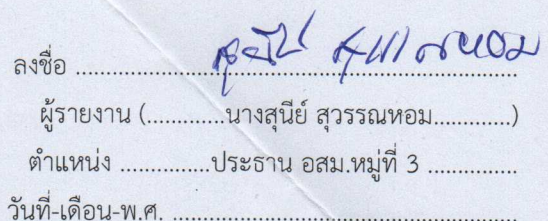 ลงชื่อ ........สุนีย์ สุวรรณหอม........
ผู้รายงาน (.............นางสุนีย์ สุวรรณหอม.............)
ตำแหน่ง ...............ประธาน อสม.หมู่ที่ 3 ...............
วันที่-เดือน-พ.ศ. ............................................................